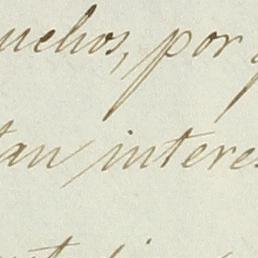 uchos, por
tan interes